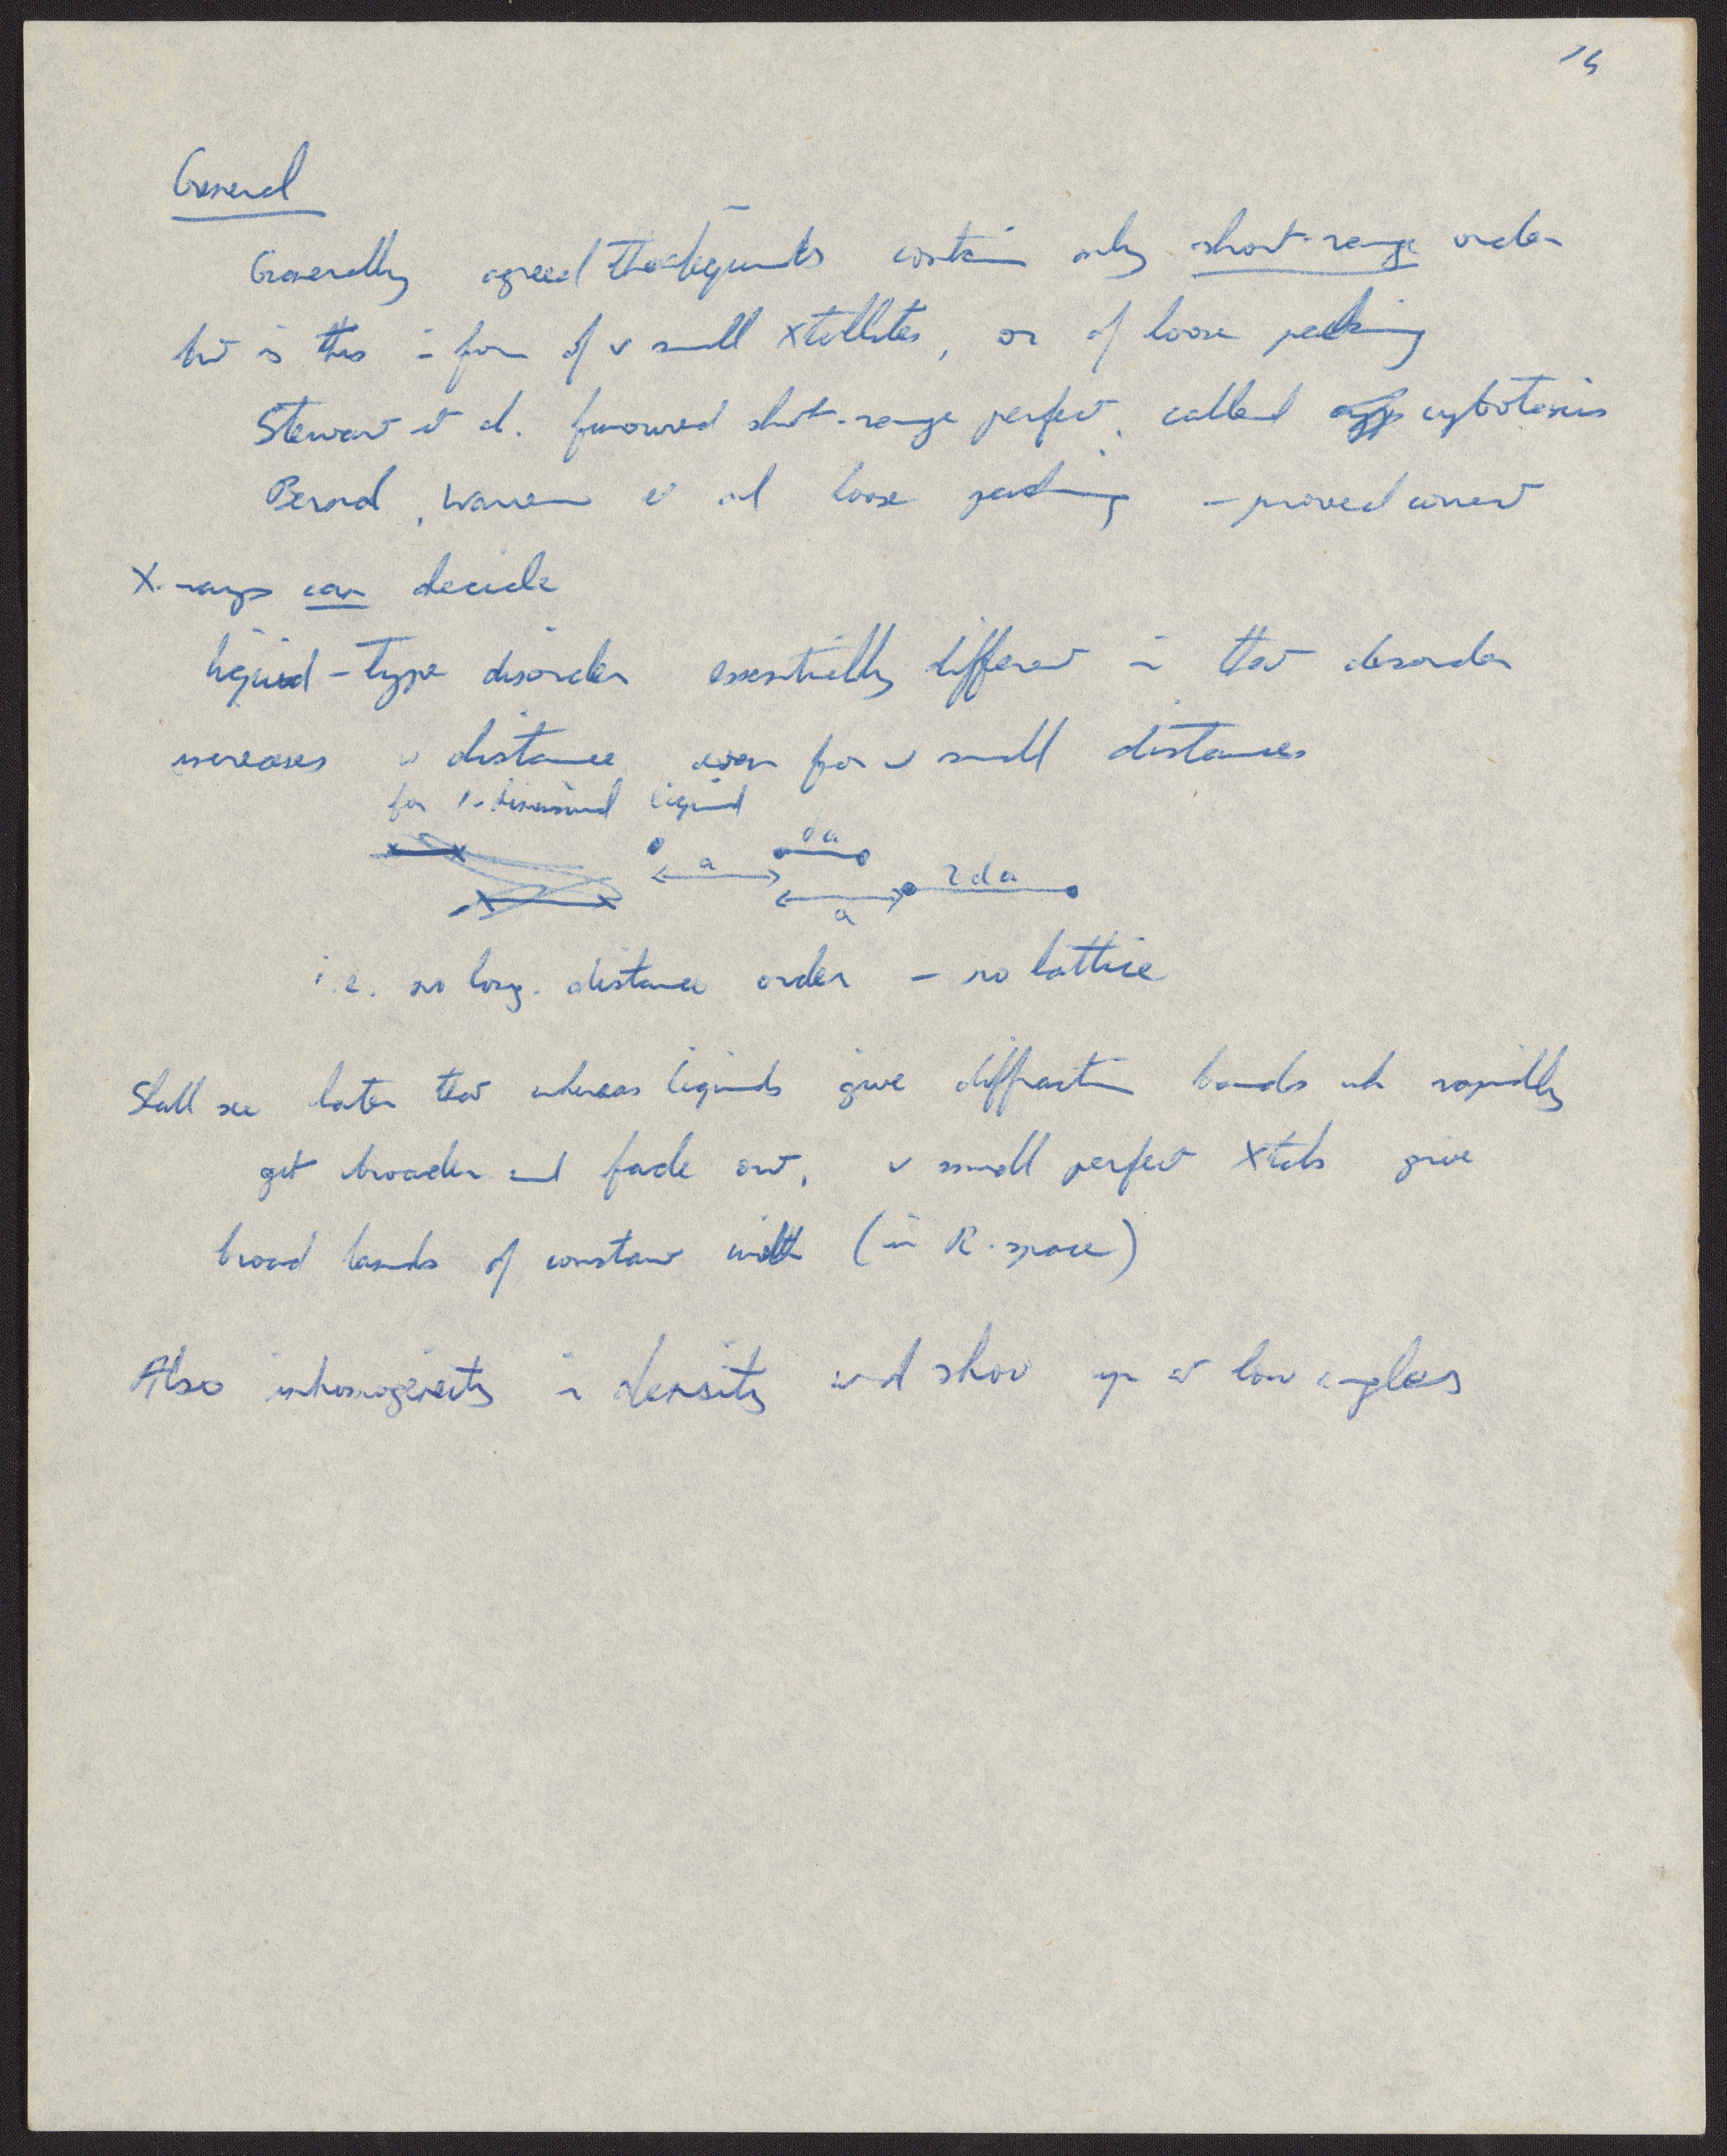 15
General
Generally agreed that liquids contain only short-range order
but is this in form of v small Xtallites, or of loose packing
Stewart et al. favoured short-range perfect, called cybotaxis
Bernal, Warren et al loose packing - proved correct
X-rays can decide
liquid-type disorder essentially different in that disorder
increases w distance even for v small distances
for 1-dimensional liquid
da
a
2da
a
i.e. no long-distance order - no lattice
Shall see later that whereas liquids give diffraction bands wh rapidly
get broader and fade out, v small perfect Xtals give
broad bands of constant width (in R-space)
Also inhomogeneity in density shov up at low angles